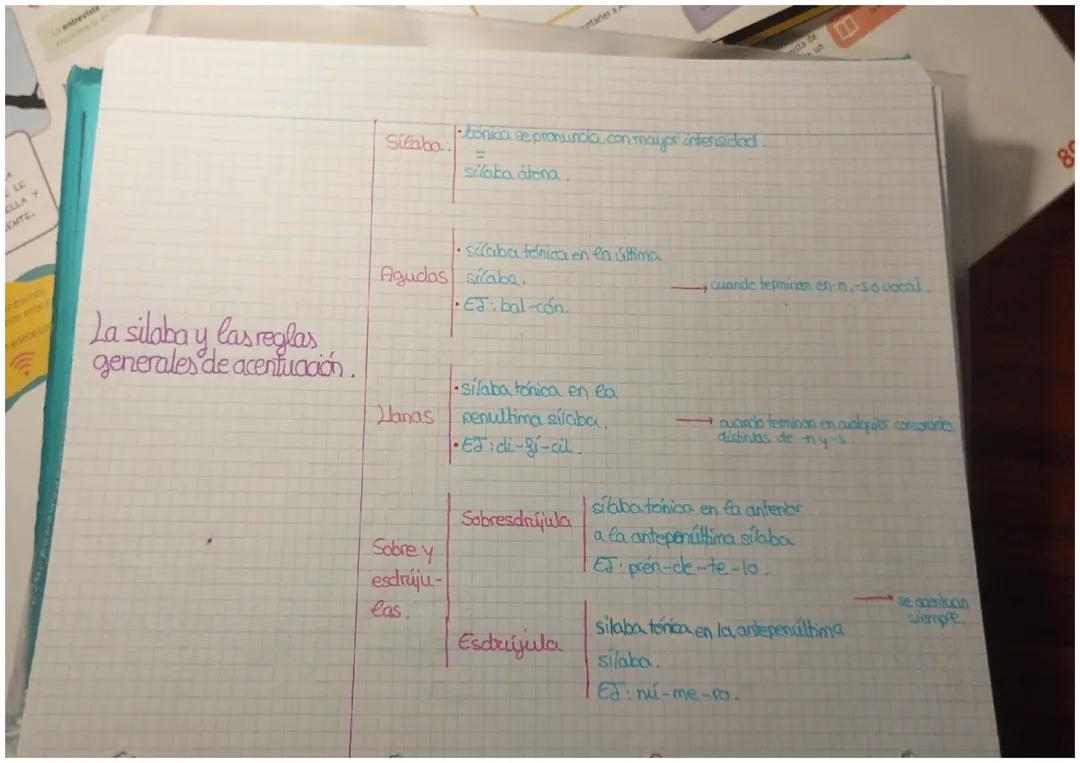 La entrevista
LE
ELLA Y
ENTE.
89
Sílaba:
· tónica se pronuncia con mayor intensidad.
=
sílaba átona.
Agudas
· sílaba tónica en la última
sílaba.
· EJ: bal-cón.
→ cuando terminan en -n, -s o vocal.
La silaba y las reglas
generales de acentuación.
Llanas
· sílaba tónica en la
penultima sílaba.
· EJ: di-fí-cil.
→ cuando terminan en cualquier consonantes
distintas de -n y -s.
Sobre y
esdrúju-
las.
Sobresdrújula
sílaba tónica en la anterior
a la antepenúltima sílaba
EJ: prén-de-te-lo.
Esdrújula
silaba tónica en la antepenúltima
sílaba.
EJ: nú-me-ro.
→ se acentuan
siempre.